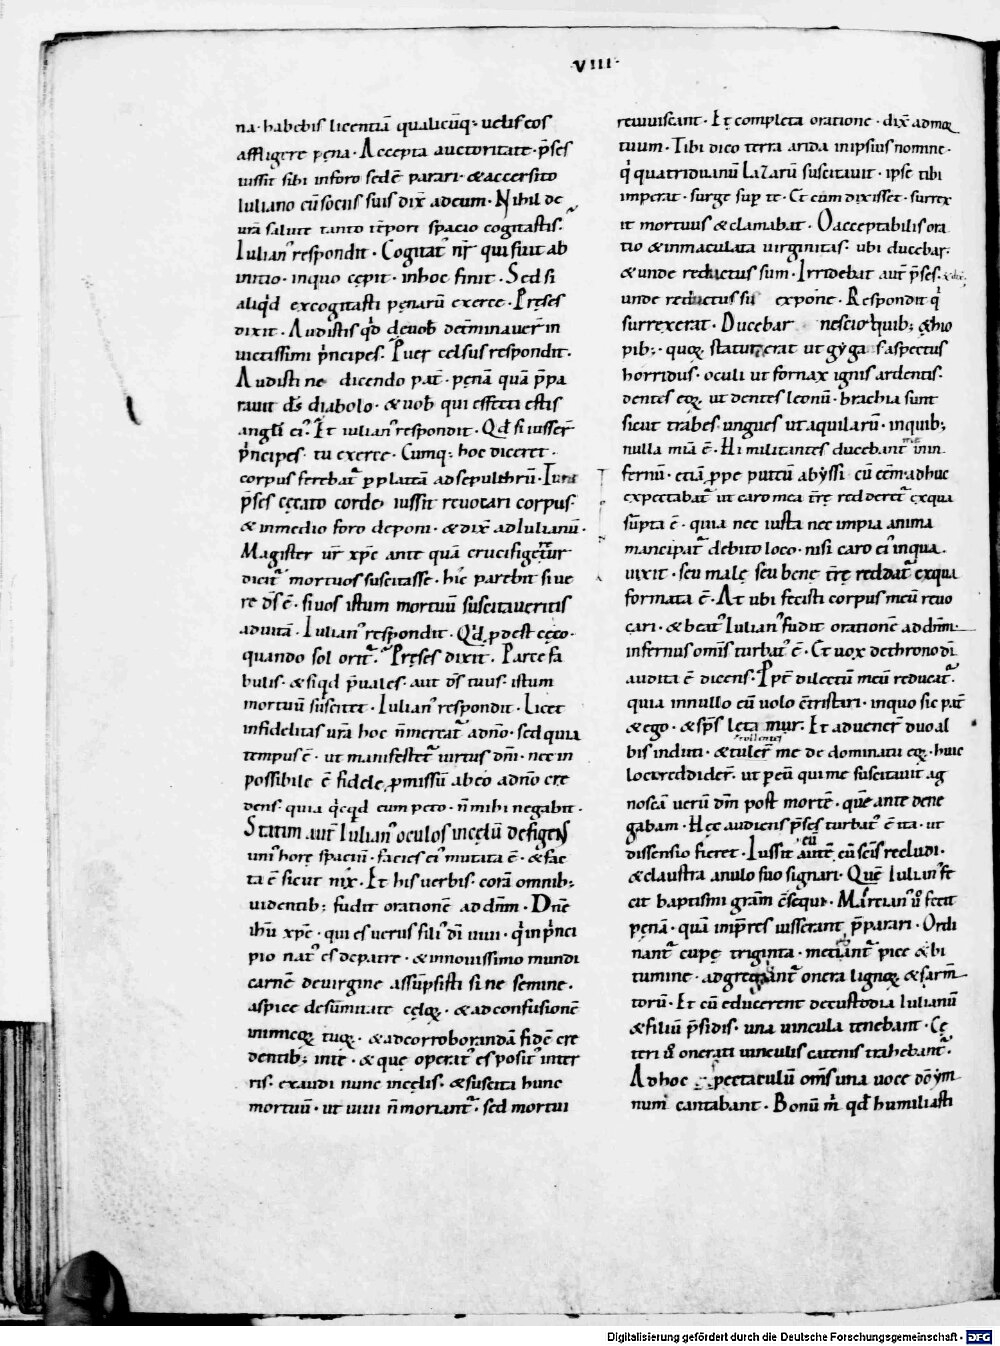 ·VIII·
na· habebis licentiā qualicūq; uelis eos
affligere pęna· Accepta auctoritate· p̄ses
iussit sibi in foro sedē parari· & accersito
Iuliano cū sociis suis dix̄ ad eum· Nihil de
urā salute tanto tēpori spacio cogitastis·
Iulian᾿ respondit· Cogitat᾿ nr̄ qui fuit ab
initio· in quo cępit· in hoc finit· Sed si
aliqͥd excogitasti pęnarū exerce· Pręses
dixit· Audistis qͥd de uob̄ det̄minauer̄ in
uictissimi pͥncipes· Puer celsus respondit·
Audisti ne dicendo pat᾿· pęnā quā p̄pa
rauit ds̄ diabolo· & uob̄ qui effecti estis
angli ei᾿· Et iulian᾿ respondit· Qd̄ si iusser̄
pͥncipes· tu exerce· Cumq; hoc diceret·
corpus ferebat᾿ p plateā ad sepulchrū· Tunc
p̄ses cęcato corde· iussit reuocari corpus·
& in medio foro deponi· & dix̄ ad Iulianū·
Magister ur̄ xpc̄ ante quā crucifigeretur
dicit᾿ mortuos suscitasse· hic parebit si ue
re ds̄ ē· si uos istum mortuū suscitaueritis
ad uitā· Iulian᾿ respondit· Qͥd pdest cęco·
quando sol orit᾿· Pręses dixit· Parce fa
bulis· & si qͥd p̄uales· aut ds̄ tuus· istum
mortuū suscitet· Iulian᾿ respondit· Licet
infidelitas urā hoc n̄ mereat᾿ a dn̄o· sed quia
tempus ē· ut manifestet᾿ uirtus dn̄i· nec in
possibile ē fidele pmissū ab eo a dn̄o cre
dens· quia qͥcqͥd cum peto· n̄ mihi negabit·
Statim aut̄ Iulian᾿ oculos in cęlū defigens
uni᾿ horę spaciū· facies ei᾿ mutata ē· & fac
ta ē sicut nix· Et his uerbis· corā omnib;
uidentib; fudit orationē ad dn̄m· Dn̄e
ihū xpe· qui es uerus fili᾿ dī uiui· qͥ in pͥnci
pio nat᾿ es de patre· & in nouissimo mundi
carnē de uirgine assūpsisti sine semine·
aspice de sūmitate cęloꝝ· & ad confusionē
inimicoꝝ tuoꝝ· & ad corroborandā fidē cre
dentib; in te· & que operat᾿ es posit᾿ in ter
ris· exaudi nunc in cęlis· & suscita hunc
mortuū· ut uiui n̄ moriant᾿· sed mortui
reuiuiscant· Et completa oratione· dix̄ ad mor
tuum· Tibi dico terra arida in ipsius nomine·
qͥ quatriduanū Lazarū suscitauit· ipse tibi
imperat· surge sup te· Et cum dixisset· surrex
it mortuus & clamabat· O acceptabilis ora
tio & inmaculata uirginitas· ubi ducebar·
& unde reductus sum· Irridebat aut̄ p̄ses·
unde reductus sū expone· Respondit qͥ
surrexerat· Ducebar nescio quib; ęthio
pib;· quoꝝ statura erat ut gygas aspectus
horridus· oculi ut fornax ignis ardentis·
dentes eoꝝ ut dentes leonū· brachia sunt
sicut trabes· ungues ut aquilarū· in quib;
nulla mīa ē· Hi militantes ducebant me in in
fernū· etiā ppe puteū abyssi cū eēm· adhuc
expectabat᾿ ut caro mea t̄rę redderet᾿ ex qua
sūpta ē· quia nec iusta nec impia anima
mancipat᾿ debito loco· nisi caro ei᾿ in qua
uixit· seu male seu bene t̄rę reddat᾿ ex qua
formata ē· At ubi fecisti corpus meū reuo
cari· & beat᾿ Iulian᾿ fudit orationē ad dn̄m·
infernus om̄is turbat᾿ ē· Et uox de throno dī
audita ē dicens· Ppt̄ dilectū meū reducat᾿·
quia in nullo eū uolo cōtristari· in quo sic pat᾿
& ego· & sp̄s lęta mur· Et aduener̄ duo al
bis induti· & tuler̄ me de dominatu eoꝝ· huic
loco reddider̄· ut p eū qui me suscitauit ag
noscā uerū dm̄ post mortē· quē ante dene
gabam· Hęc audiens p̄ses turbat᾿ ē ita· ut
dissensio fieret· Iussit autē eū cū scīs recludi·
& claustra anulo suo signari· Quē Iulian᾿ fe
cit baptismi grām cōsequi· Martian᾿ u̇ fecit
pęnā· quā imp̄res iusserant p̄parari· Ordi
nant᾿ cupę triginta· mediant᾿ pice & bi
tumine· adgregant᾿ onera lignoꝝ & sarm̄
torū· Et cū educerent de custodia Iulianū
& filiū p̄sidis· una uincula tenebant· Cę
teri u̇ onerati uinculis catenis trahebant᾿·
Ad hoc spectaculū om̄s una uoce dō ym
num cantabant· Bonū m̄ qd̄ humiliasti
Digitalisierung gefördert durch die Deutsche Forschungsgemeinschaft - DFG